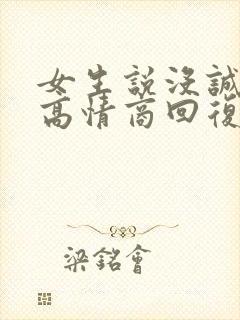 女生說沒誠
高情商回復
梁銘會